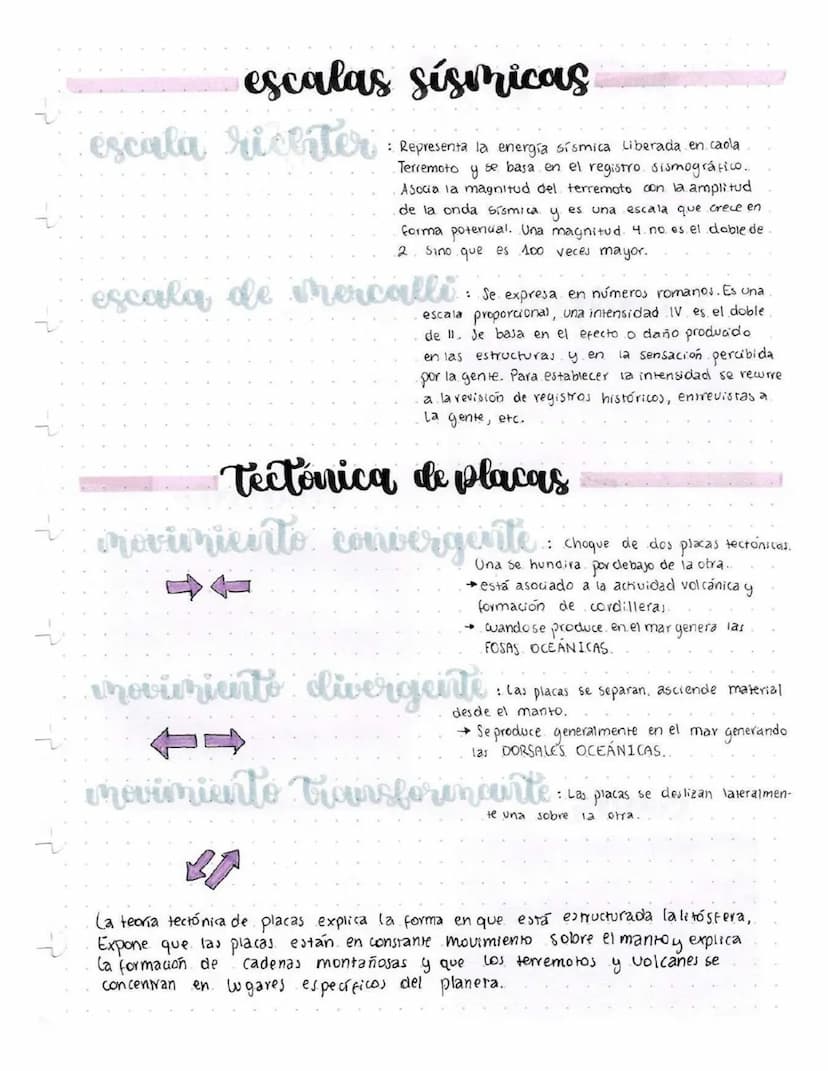 escalas sísmicas
escala richter : Representa la energía sísmica Liberada en cada
Terremoto y se basa en el registro sismográfico.
Asocia la magnitud del terremoto con la amplitud
de la onda sísmica y es una escala que crece en
forma potencial. Una magnitud 4 no es el doble de
2 sino que es 100 veces mayor.
escala de mercalli : Se expresa en números romanos. Es una
escala proporcional, una intensidad IV es el doble
de II. Se basa en el efecto o daño producido
en las estructuras y en la sensación percibida
por la gente. Para establecer la intensidad se recurre
a la revisión de registros históricos, entrevistas a
la gente, etc.
tectónica de placas
movimiento convergente : Choque de dos placas tectónicas.
Una se hundira por debajo de la otra.
→ está asociado a la actividad volcánica y
formación de cordilleras
→ cuando se produce en el mar genera las
FOSAS OCEÁNICAS.
movimiento divergente : Las placas se separan, asciende material
desde el manto.
→ Se produce generalmente en el mar generando
las DORSALES OCEÁNICAS.
movimiento transformante : Las placas se deslizan lateralmen-
te una sobre la otra.
La teoría tectónica de placas explica la forma en que está estructurada la litósfera,
Expone que las placas están en constante movimiento sobre el manto y explica
la formación de cadenas montañosas y que los terremotos y volcanes se
concentran en lugares específicos del planeta.